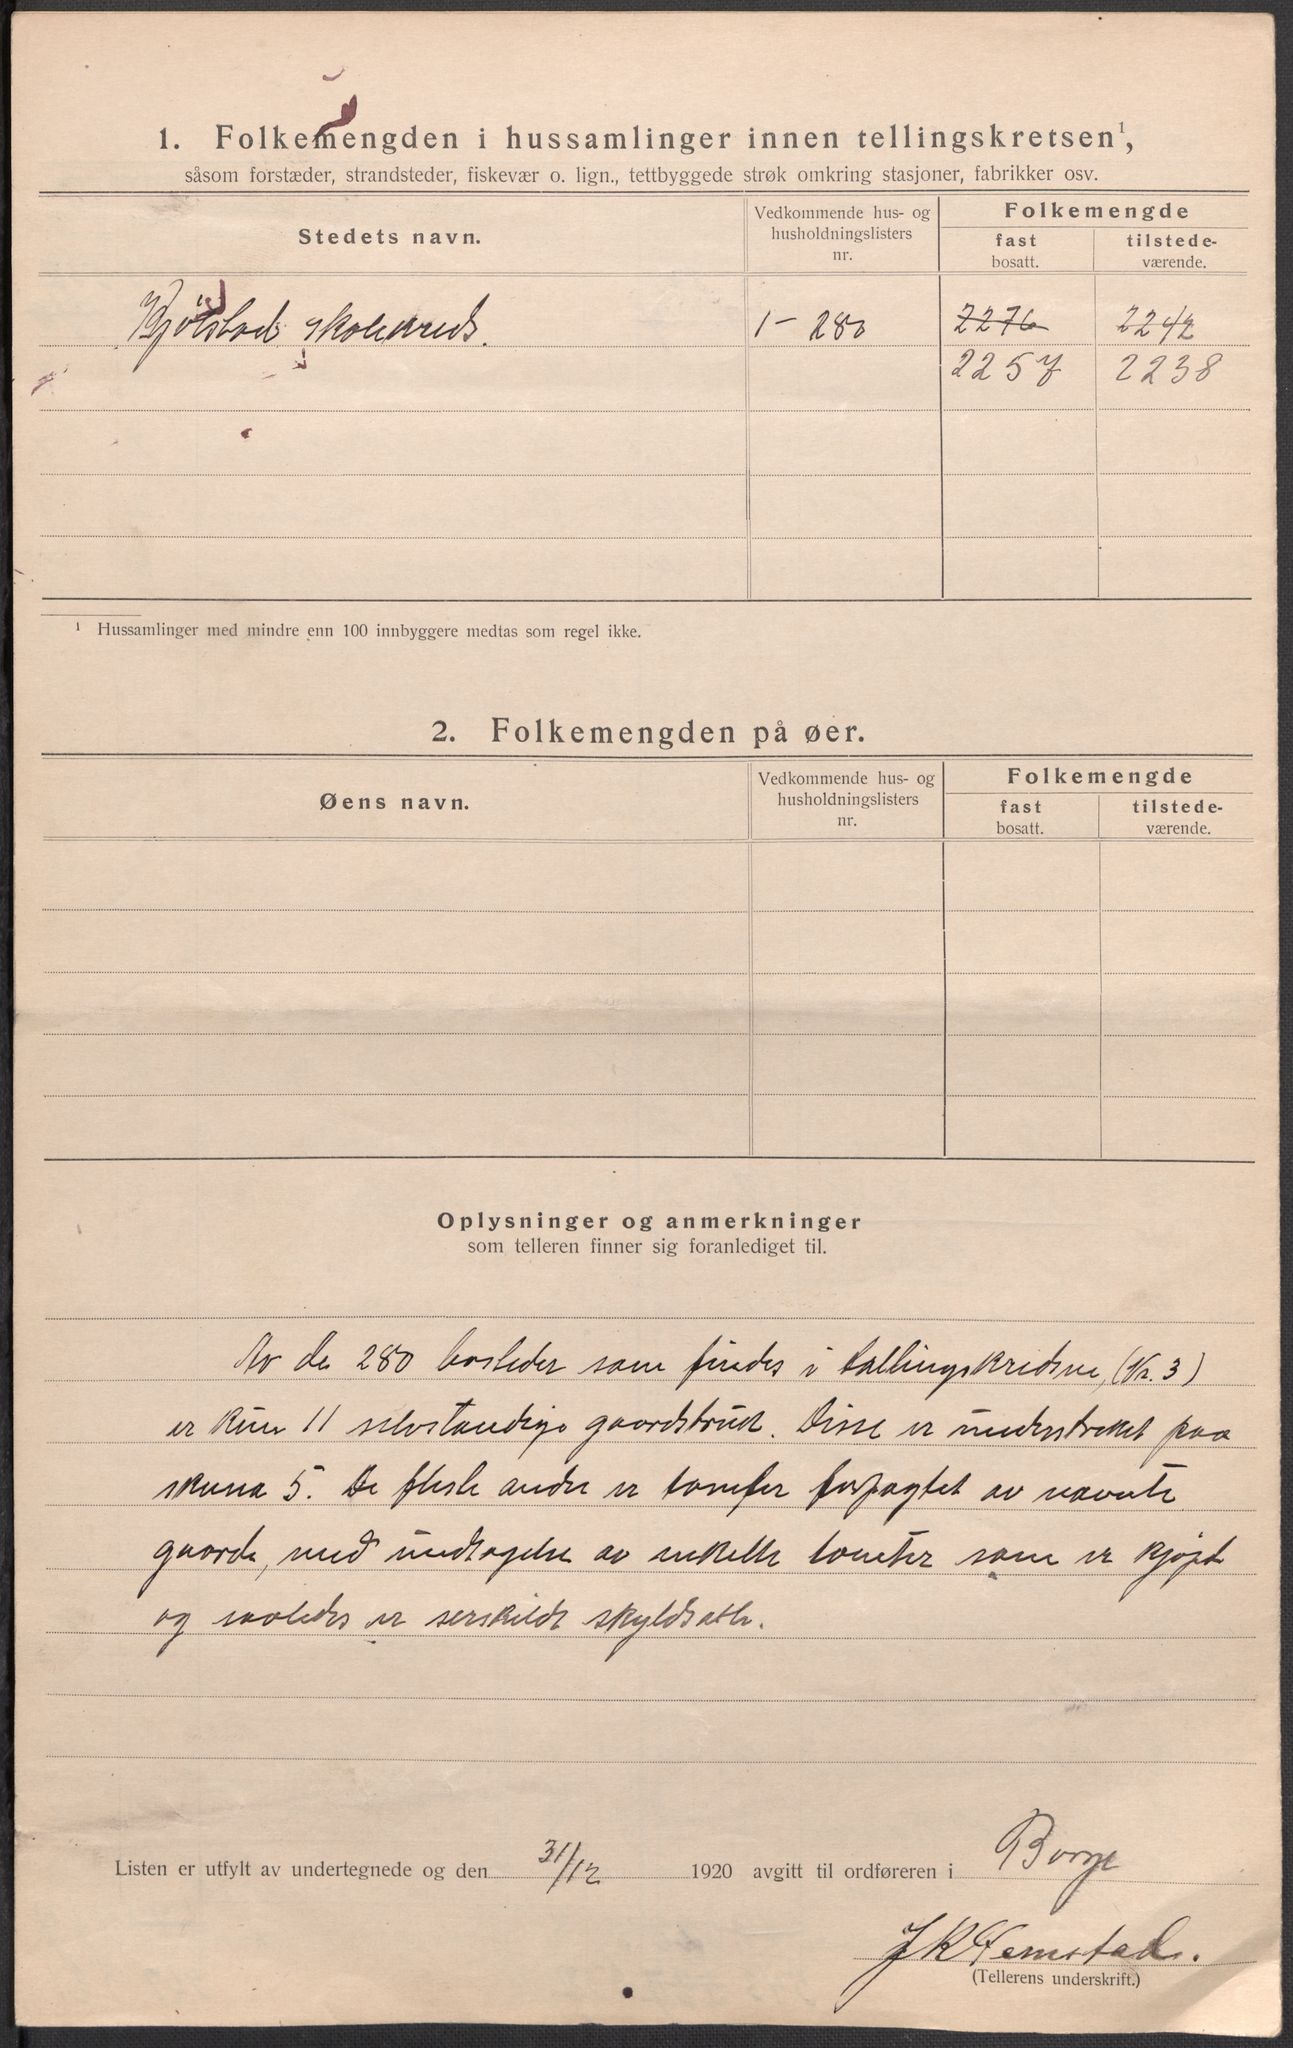 1. Folkemengden i hussamlinger innen tellingskretsen¹,
såsom forstæder, strandsteder, fiskevær o. lign., tettbyggede strøk omkring stasjoner, fabrikker osv.
Stedets navn.
Vedkommende hus- og husholdningslisters nr.
Folkemengde
fast bosatt.
tilstede-værende.
Bjølstad skolekreds. 1- 280 2276 2242
2257 2238
¹ Hussamlinger med mindre enn 100 innbyggere medtas som regel ikke.
2. Folkemengden på øer.
Øens navn.
Vedkommende hus- og husholdningslisters nr.
Folkemengde
fast bosatt.
tilstede-værende.
Oplysninger og anmerkninger
som telleren finner sig foranlediget til.
Av de 280 bosteder som findes i tællingskredsene, (Nr. 3)
er kun 11 selvstændige gaardsbruk. Disse er understreket paa
skema 5. De fleste andre er tomter forpagtet av nævnte
gaarde, med undtagelse av enkelte tomter som er kjøpt
og saaledes er særskildt skyldsatte.
Listen er utfylt av undertegnede og den 31/12 1920 avgitt til ordføreren i Borge
(Tellerens underskrift.)